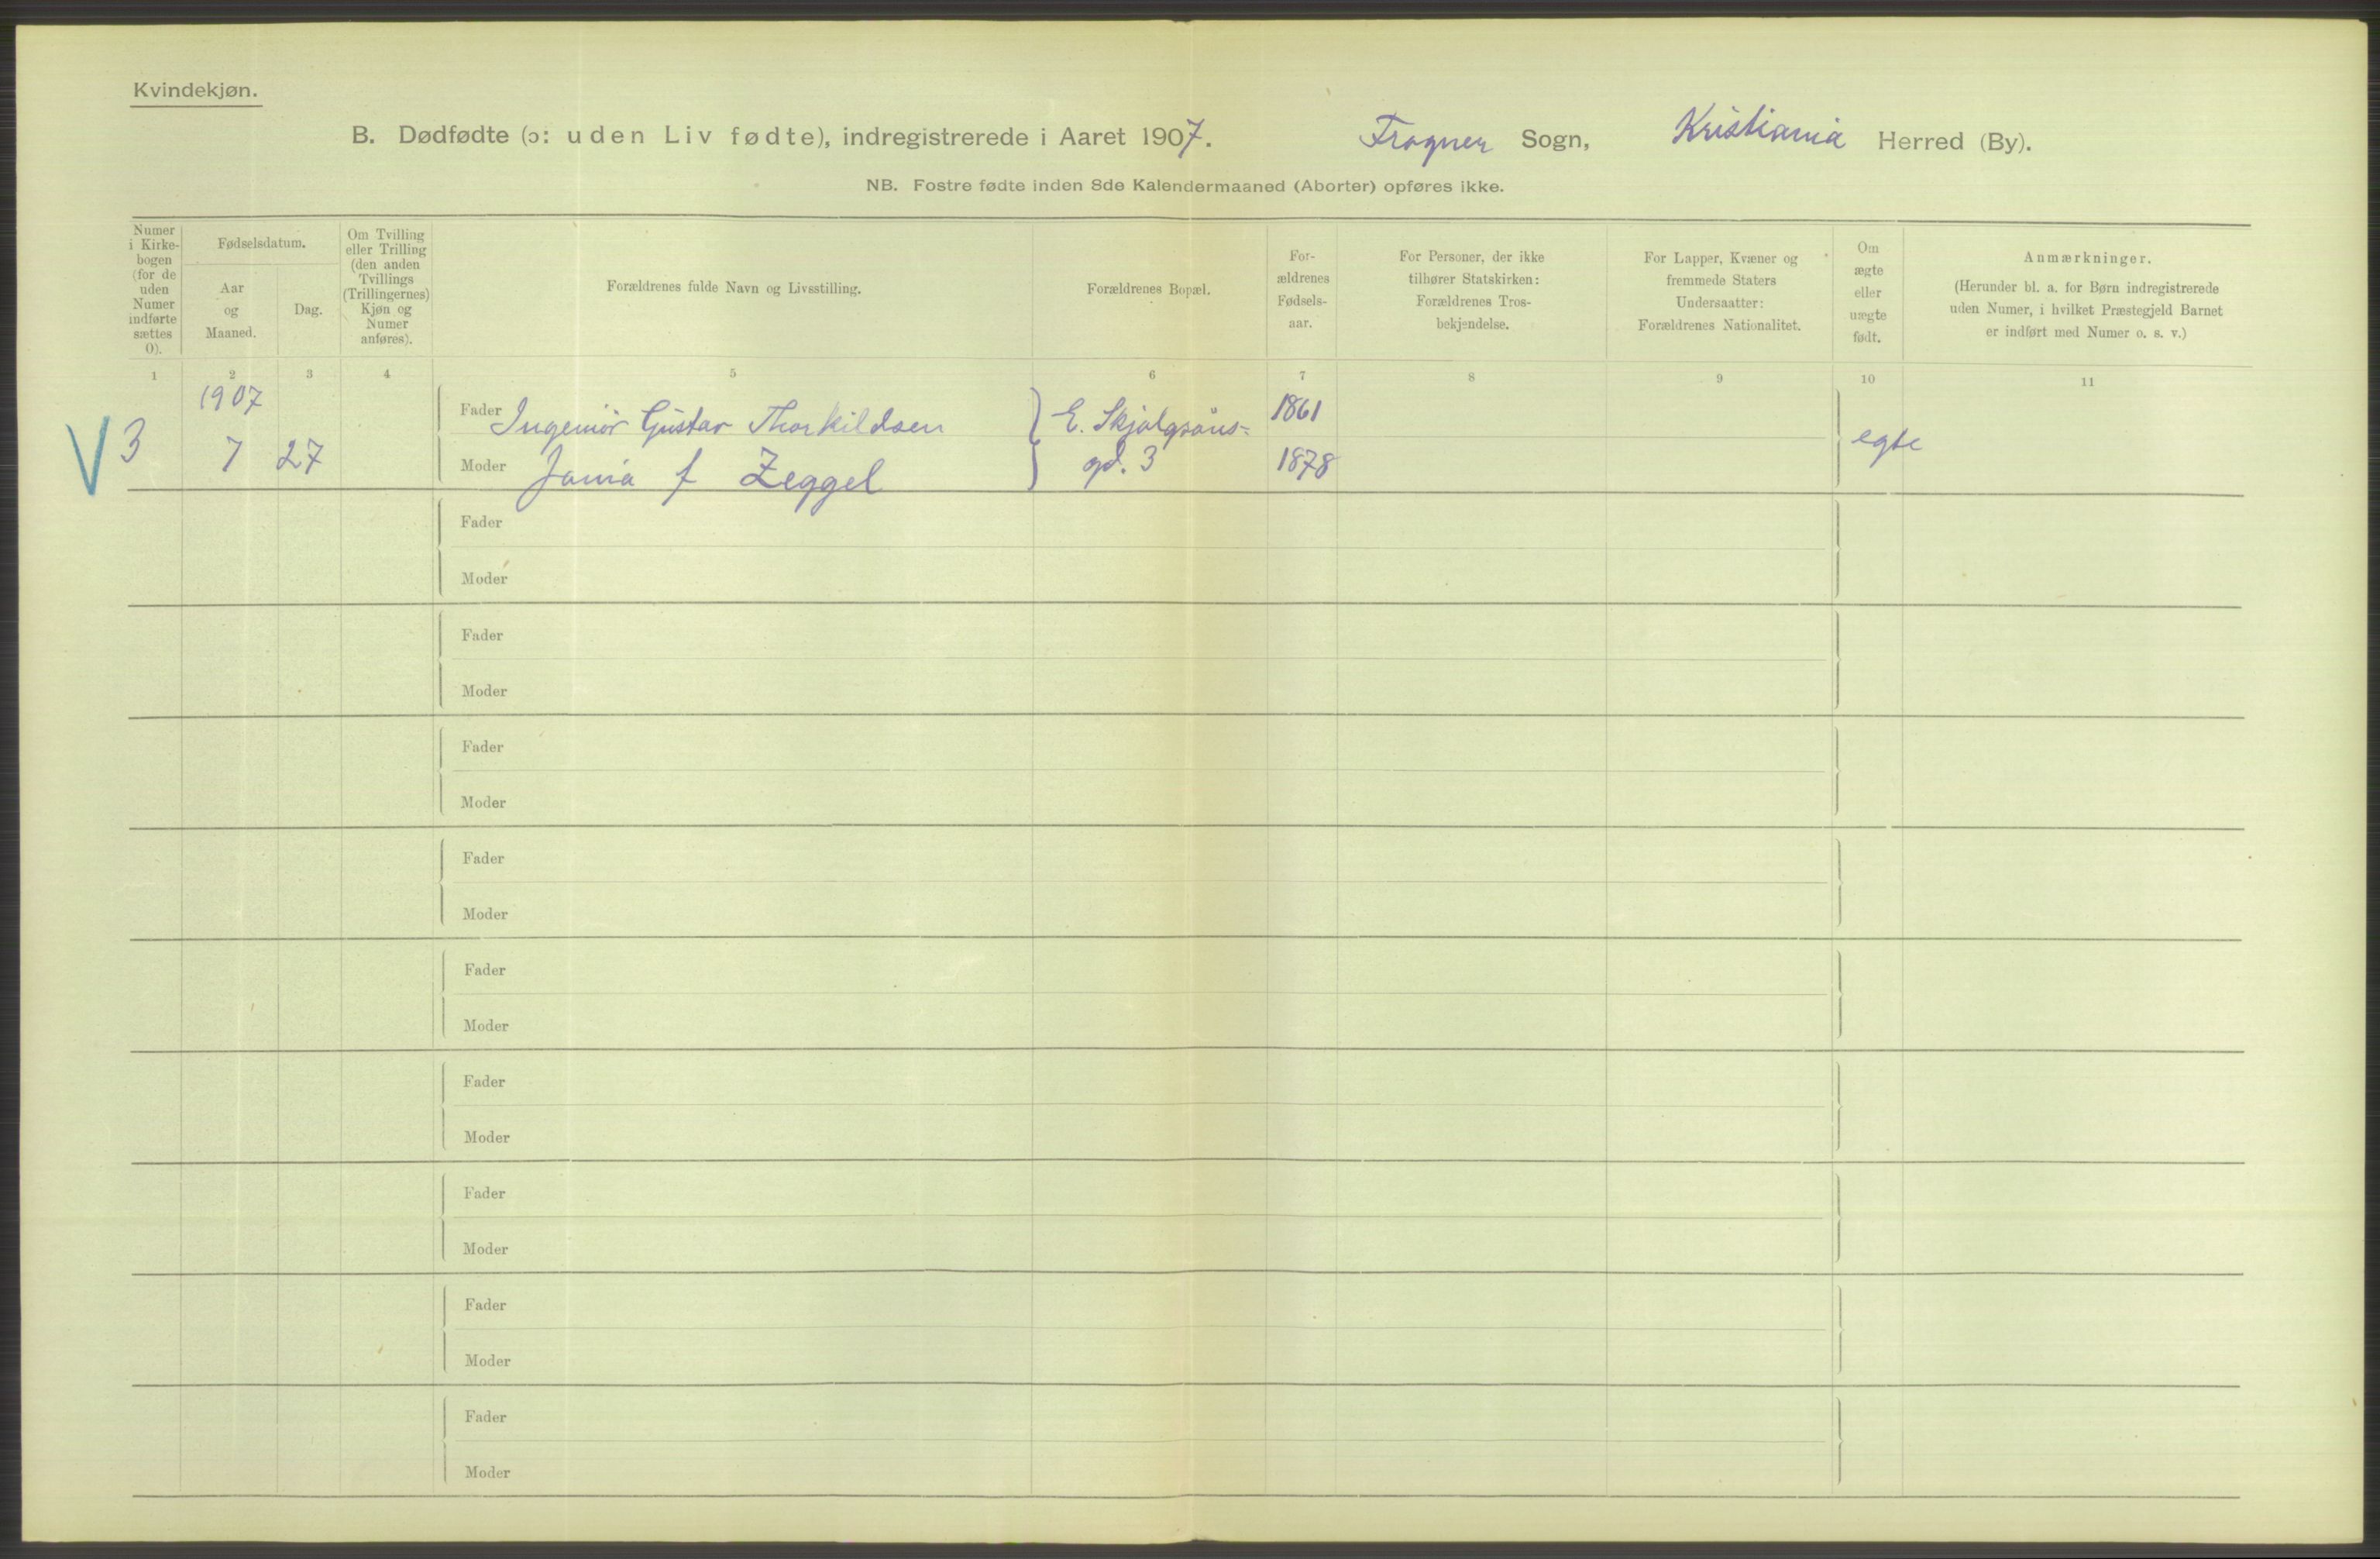 Kvindekjøn.
B. Dødfødte (ɔ: uden Liv fødte), indregistrerede i Aaret 1907. Frogner Sogn, Kristiania Herred (By).
NB. Fostre fødte inden 8de Kalendermaaned (Aborter) opføres ikke.
Numer i Kirke-bogen (for de uden Numer indførte sættes 0).
Fødselsdatum.
Aar og Maaned.
Dag.
Om Tvilling eller Trilling (den anden Tvillings (Trillingernes) Kjøn og Numer anføres).
Forældrenes fulde Navn og Livsstilling.
Forældrenes Bopæl.
For-ældrenes Fødsels-aar.
For Personer, der ikke tilhører Statskirken: Forældrenes Tros-bekjendelse.
For Lapper, Kvæner og fremmede Staters Undersaatter: Forældrenes Nationalitet.
Om ægte eller uægte født.
Anmærkninger.
(Herunder bl. a. for Børn indregistrerede uden Numer, i hvilket Præstegjeld Barnet er indført med Numer o. s. v.)
1 2 3 4 5 6 7 8 9 10 11
1907
V 3 7 27
Fader Ingeniör Gustav Thorkildsen E. Skjalgsöns- 1861
Moder f Zeggel gd. 3 1878 egte
Fader
Moder
Fader
Moder
Fader
Moder
Fader
Moder
Fader
Moder
Fader
Moder
Fader
Moder
Fader
Moder
Fader
Moder